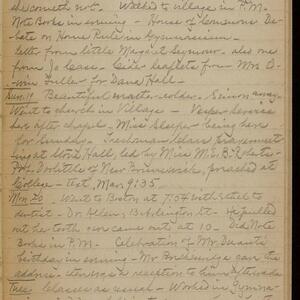 she cometh not. Walked to village in P.M.
Note Books in evening - House of Commons De-
bate on Home Rule in Gymnasium -
letter from little Margaret Seymour, also one
from
leaflets for Mrs
Fuller for Dana Hall -
Sun. 19 Beautiful
Went to church in Village - Vesper service
here after chapel, Miss Sleeper being here
for Sunday. Freshman class prayermeet-
ing at Stone Hall, led by Miss M. E. B. Roberts -
of New Brunswick, preached at
College - text, Mark 9:35.
Mon. 20 Went to Boston at 7.54 with Ethel to
dentist - Dr. Allen, Boylston St. He pulled
out her tooth (or came out) at 10 - Did Note
Books in P.M. - Celebration of Mr. Durant's
birthday in evening - Mr. Breckenridge gave the
address - reception to him afterwards
Tues. Classes as usual - Worked in Gymna-